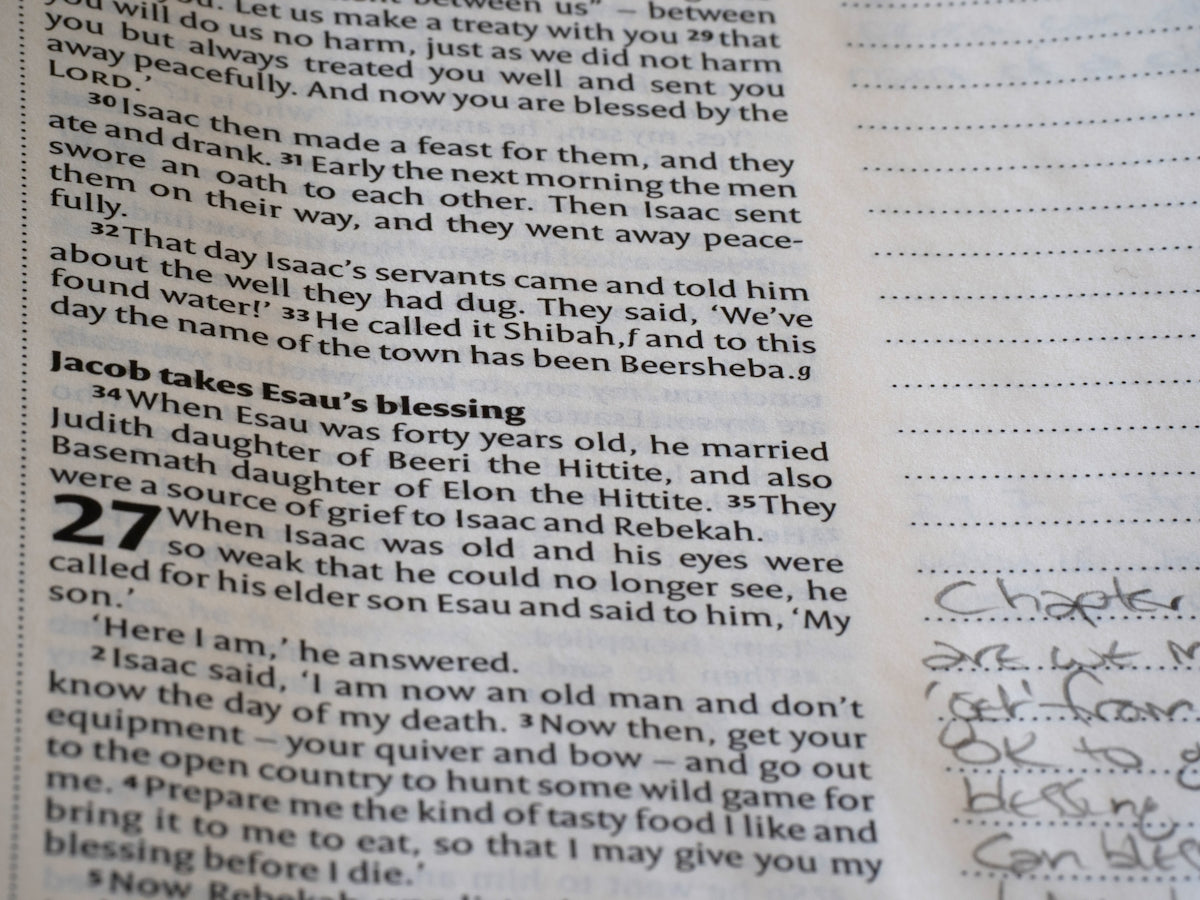 between us” – between
you. Let us make a treaty with you 29 that
you will do us no harm, just as we did not harm
you but always treated you well and sent you
away peacefully. And now you are blessed by the
LORD.’
30 Isaac then made a feast for them, and they
ate and drank. 31 Early the next morning the men
swore an oath to each other. Then Isaac sent
them on their way, and they went away peace-
fully.
32 That day Isaac’s servants came and told him
about the well they had dug. They said, ‘We’ve
found water!’ 33 He called it Shibah,f and to this
day the name of the town has been Beersheba.g
Jacob takes Esau’s blessing
34 When Esau was forty years old, he married
Judith daughter of Beeri the Hittite, and also
Basemath daughter of Elon the Hittite. 35 They
were a source of grief to Isaac and Rebekah.
27 When Isaac was old and his eyes were
so weak that he could no longer see, he
called for his elder son Esau and said to him, ‘My
son.’
‘Here I am,’ he answered.
2 Isaac said, ‘I am now an old man and don’t
know the day of my death. 3 Now then, get your
equipment – your quiver and bow – and go out
to the open country to hunt some wild game for
me. 4 Prepare me the kind of tasty food I like and
bring it to me to eat, so that I may give you my
blessing before I die.’
5 Now Rebekah
Chapter
are we
'get' from
OK to
blessing
can bless